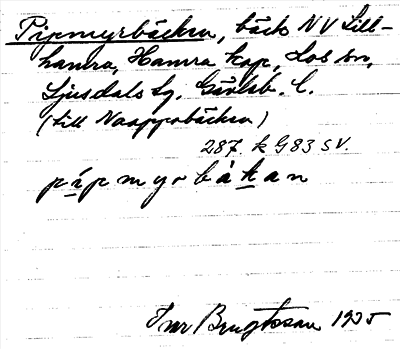 Pipmyrbäcken, bäck NV Lill-
hamra, Hamra kap, Los sn,
Ljusdals tg. Gävleb. l.
(till Noappobäcken)
287. k G 83 SV.
pipmyrbäkan
Ivar Bengtsson 1935